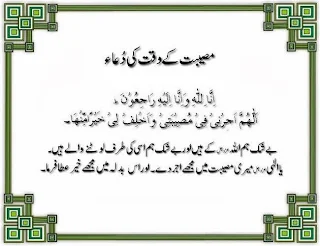 مصیبت کے وقت کی دُعاء
اِنَّا لِلّٰهِ وَاِنَّا اِلَيْهِ رَاجِعُوْنَ۔
اَللّٰهُمَّ اَجِرْنِیْ فِیْ مُصِيْبَتِیْ وَاَخْلِفْ لِیْ خَيْرًامِّنْهَا۔
بے شک ہم اللہ کے ہیں اور بے شک ہم اسی کی طرف لوٹنے والے ہیں۔
یا الٰہی میری مصیبت میں مجھے اجر دے۔ اور اس بدلہ میں مجھے خیر عطا فرما۔